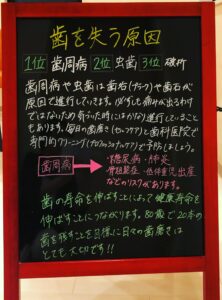 歯を失う原因
1位 歯周病 2位 虫歯 3位 破折
歯周病や虫歯は歯垢(プラーク)や歯石が
原因で進行していきます。必ずしも痛みが出るわけ
ではないため 気づいた時には
進行していること
もあります。毎日の歯磨き(セルフケア)と歯科医院で
専門的クリーニング(プロフェッショナルケア)で予防しましょう。
歯周病 → ・糖尿病・肺炎
・骨粗鬆症・低体重児出産
などのリスクがあります。
歯の寿命を伸ばすことによって健康寿命を
伸ばすことにつながります。80歳で20本の
歯を残すことを目標に日々の歯磨きは
とても大切です!!